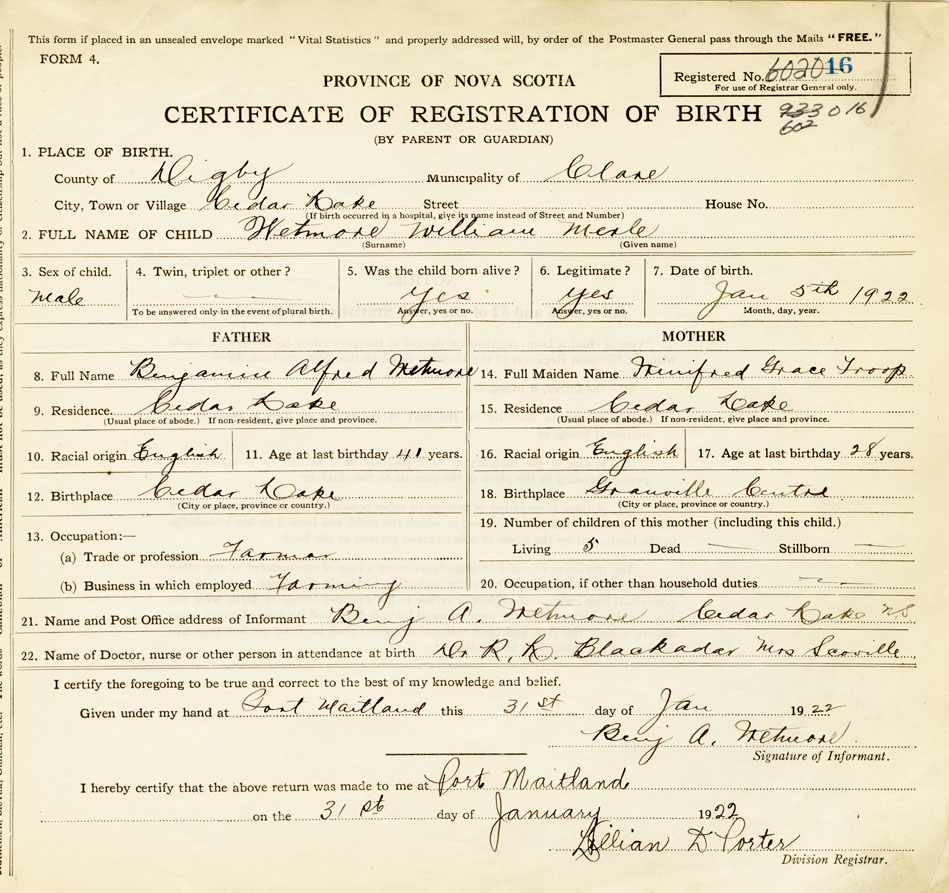 This form if placed in an unsealed envelope marked "Vital Statistics" and properly addressed will, by order of the Postmaster General pass through the Mails "FREE."
FORM 4.
Registered No. 602016
For use of Registrar General only.
PROVINCE OF NOVA SCOTIA
CERTIFICATE OF REGISTRATION OF BIRTH 933 016
602
(BY PARENT OR GUARDIAN)
1. PLACE OF BIRTH.
County of Digby Municipality of Clare
City, Town or Village Cedar Lake Street House No.
(If birth occurred in a hospital, give its name instead of Street and Number)
2. FULL NAME OF CHILD Wetmore William Merle
(Surname) (Given name)
3. Sex of child. 4. Twin, triplet or other? 5. Was the child born alive? 6. Legitimate? 7. Date of birth.
Male — Yes Yes Jan 5th 1922
To be answered only in the event of plural birth. Answer, yes or no. Answer, yes or no. Month, day, year.
FATHER MOTHER
8. Full Name Benjamin Alfred Wetmore 14. Full Maiden Name Winifred Grace Troop
9. Residence. Cedar Lake 15. Residence Cedar Lake
(Usual place of abode.) If non-resident, give place and province. (Usual place of abode.) If non-resident, give place and province.
10. Racial origin English 11. Age at last birthday 41 years. 16. Racial origin English 17. Age at last birthday 28 years.
12. Birthplace Cedar Lake 18. Birthplace Granville Centre
(City or place, province or country.) (City or place, province or country.)
13. Occupation:— 19. Number of children of this mother (including this child.)
(a) Trade or profession Farmer Living 5 Dead — Stillborn —
(b) Business in which employed Farming 20. Occupation, if other than household duties —
21. Name and Post Office address of Informant Benj A. Wetmore Cedar Lake N.S.
22. Name of Doctor, nurse or other person in attendance at birth Dr R. L. Blackadar Mrs Scoville
I certify the foregoing to be true and correct to the best of my knowledge and belief.
Given under my hand at Port Maitland this 31st day of Jan 1922
Benj A. Wetmore
Signature of Informant.
I hereby certify that the above return was made to me at Port Maitland
on the 31st day of January 1922
Lillian D Porter
Division Registrar.